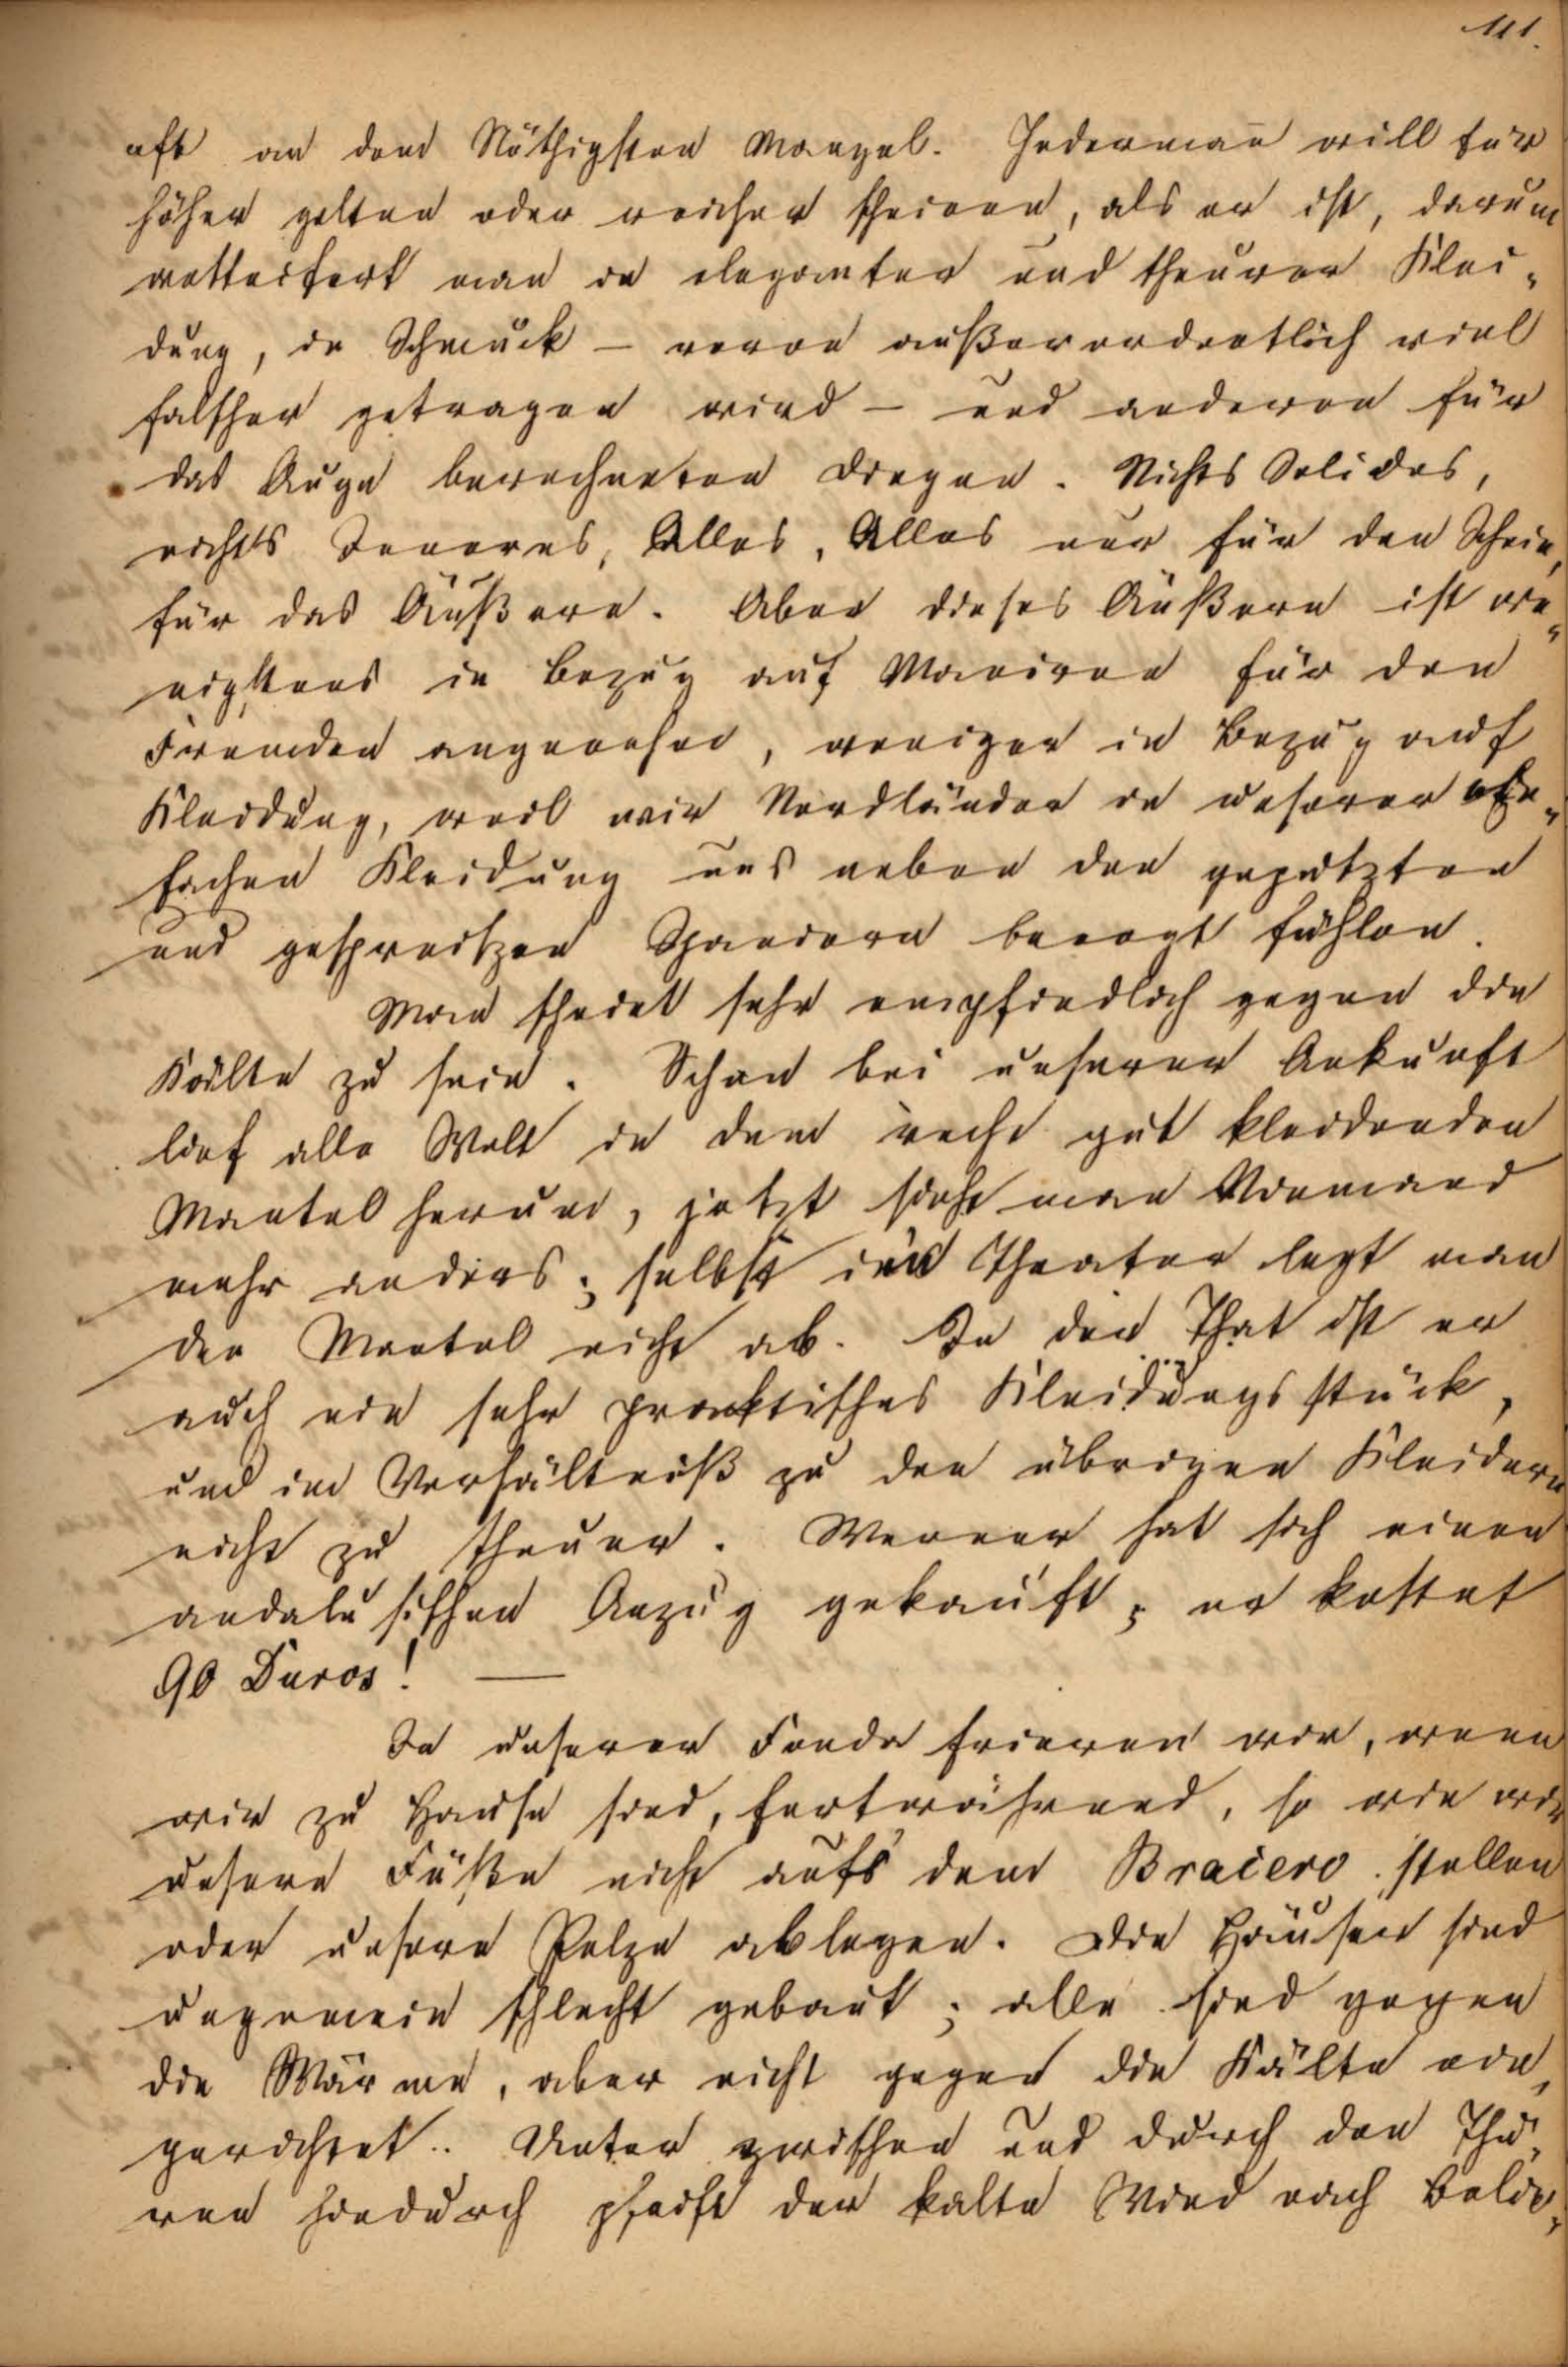 111.
oft an dem Nöthigsten Mangel. Jedermañ will für
höher gelten oder reicher scheinen, als er ist, darum
wetteifert man in eleganter und theurer Klei„
dung, in Schmuck – wovon außerordentlich viel
falscher getragen wird – und anderen für
das Auge berechneten Dingen. Nichts Solides,
nichts Inneres, Alles, Alles nur für den Schein,
für das Äußere. Aber dieses Äußere ist we„
nigstens in Bezug auf Manieren für den
Fremden angenehm, weniger in Bezug auf
Kleidung, weil wir Nordländer in unserer ein„
fachen Kleidung uns neben den geputzten
und gespreitzen Spaniern beengt fühlen.
Man scheint sehr empfindlich gegen die
Kälte zu sein. Schon bei unserer Ankunft
lief alle Welt in dem recht gut kleidenden
Mantel herum, jetzt sieht man Niemand
mehr anders; selbst im Theater legt man
den Mantel nicht ab. In der That ist er
auch ein sehr praktisches Kleidungsstück,
und im Verhältniß zu den übrigen Kleidern
nicht zu theuer. Werner hat sich einen
andalusischen Anzug gekauft; er kostet
90 Duros! —
In unserer Fonda frieren wir, wenn
wir zu Hause sind, fortwährend, so wie wir
unsere Füße nicht aufs dem Braiero stellen
oder unsere Pelze ablegen. Die Häuser sind
ungemein schlecht gebaut; alle sind gegen
die Wärme, aber nicht gegen die Kälte ein„
gerichtet.. Unter zwischen und durch den Thü„
ren hindurch pfeift der kalte Wind nach Belie„